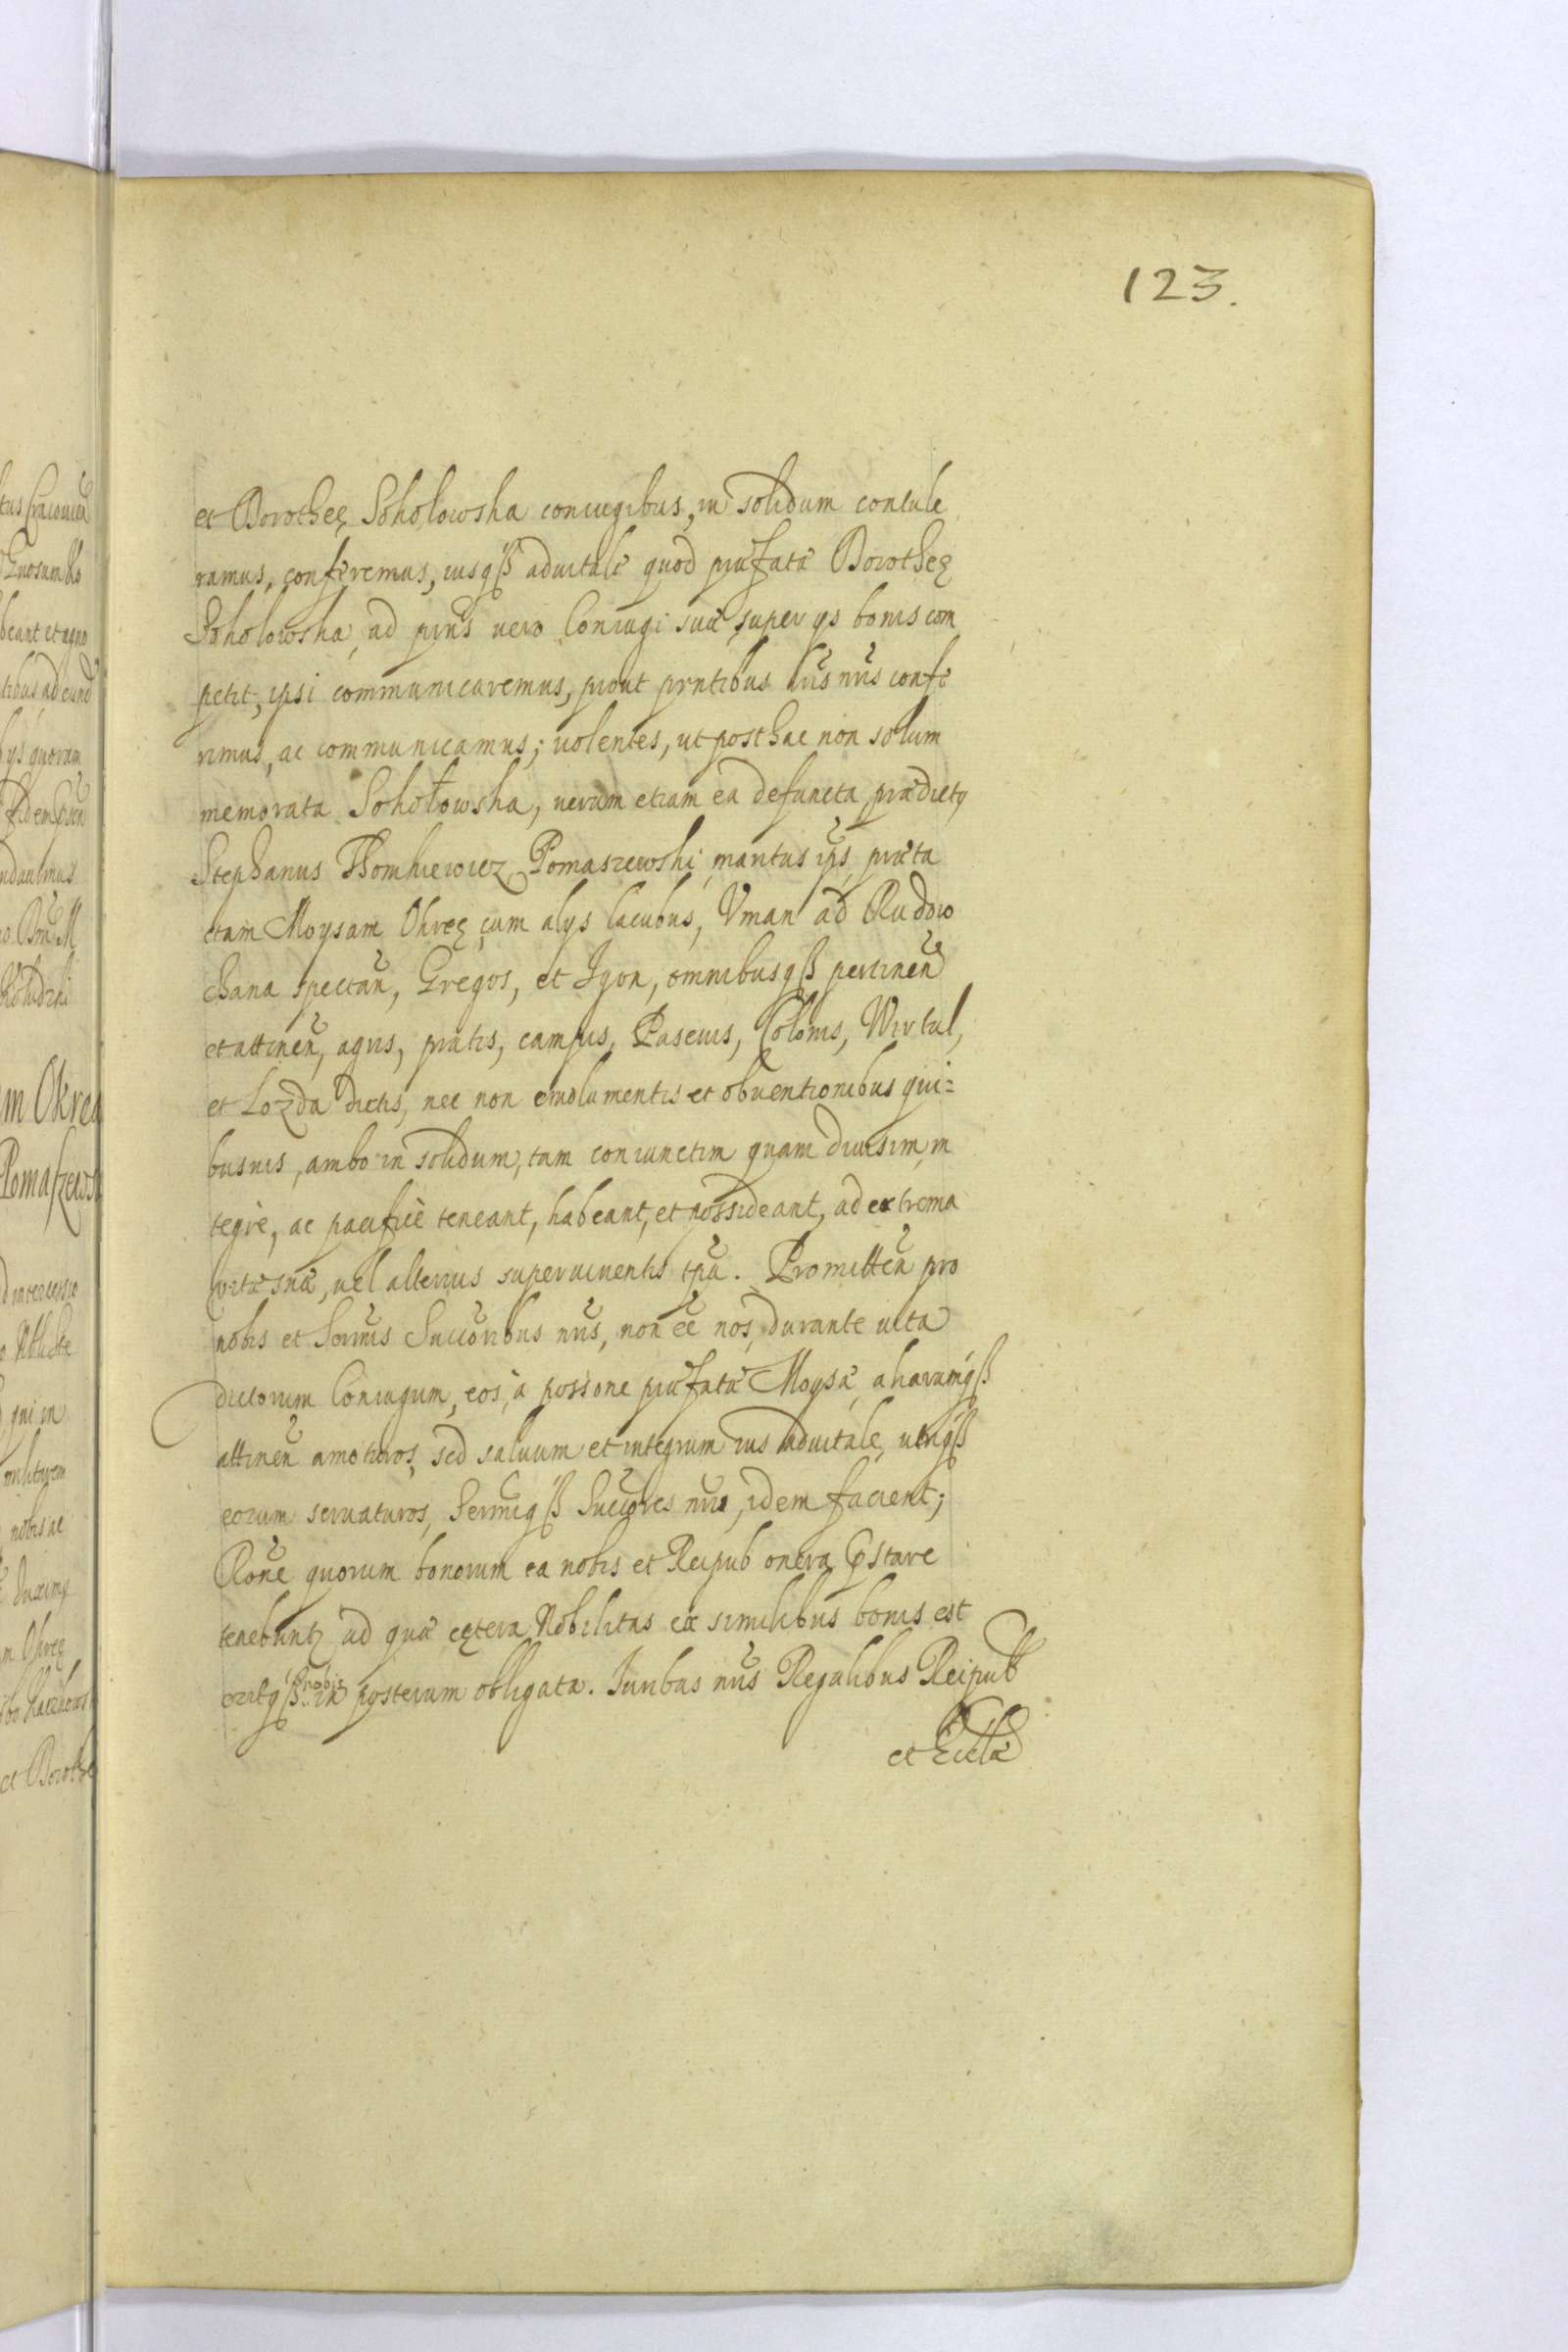 123.
et Dorotheę Sokołowska coniugibus, in solidum contule
ramus, conferremus, iusqß aduitale quod præfatæ Dorotheę
Sokolowska, ad præns vero Coniugi suæ super ys bonis com
petit, ipsi communicaremus, prout prntibus lris nris confe
rimus, ac communicamus; uolentes, ut posthac non solum
memorata Sokołowska, uerum etiam ea defuncta, prædictq
Stephanus Thomkiewicz Pomaszewski, maritus ips, præta
ctam Moysam Okreę cum alys lacubus, Vman ad Rudow
chana spectan, Gregos, et Igon, omnibusqß pertinen
et attinen, agris, pratis, campis, Pascuis, Colonis, Wirtul,
et Lozda dictis, nec non emolumentis et obuentionibus qui=
busuis, ambo in solidum, tam coniunctim quam diuisim, in
tegrè, ac pacificè teneant, habeant, et possideant, ad extrema
vitæ suæ, uel alterius superuiuentis tpa. Promitten pro
nobis et Sermis Succoribus nris, non ee nos, durante uita
dictorum Coniugum, eos, à possione præfatæ Moysæ, aharumqß
attinen amoturos, sed saluum et integrum ius aduitale, utriqß
eorum seruaturos, Sermiqß Succores nri, idem facient;
Rone quorum bonorum ea nobis et Reipub onera pstare
tenebuntr ad quæ cętera Nobilitas ex similibus bonis est
eritqß in posterum obligata. Iuribus nris Regalibus Reipub
et Eccla
tus Cracouien
beant et agno
tibus ad eund
ys quorum
m Okrea
Pomaszews
d intercessio
qui in
militarem
nobis ac
m Okreę
et Dorothe